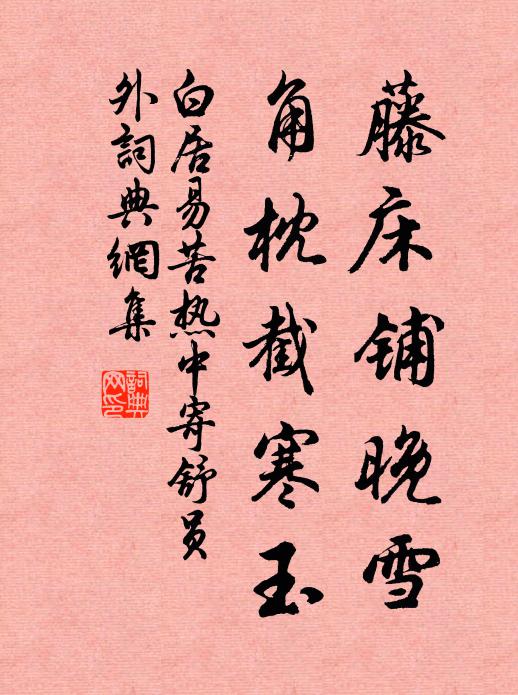 藤床铺晚雪
角枕截寒玉
白居易苦热中寄舒员
外词典網集
詞典
网印